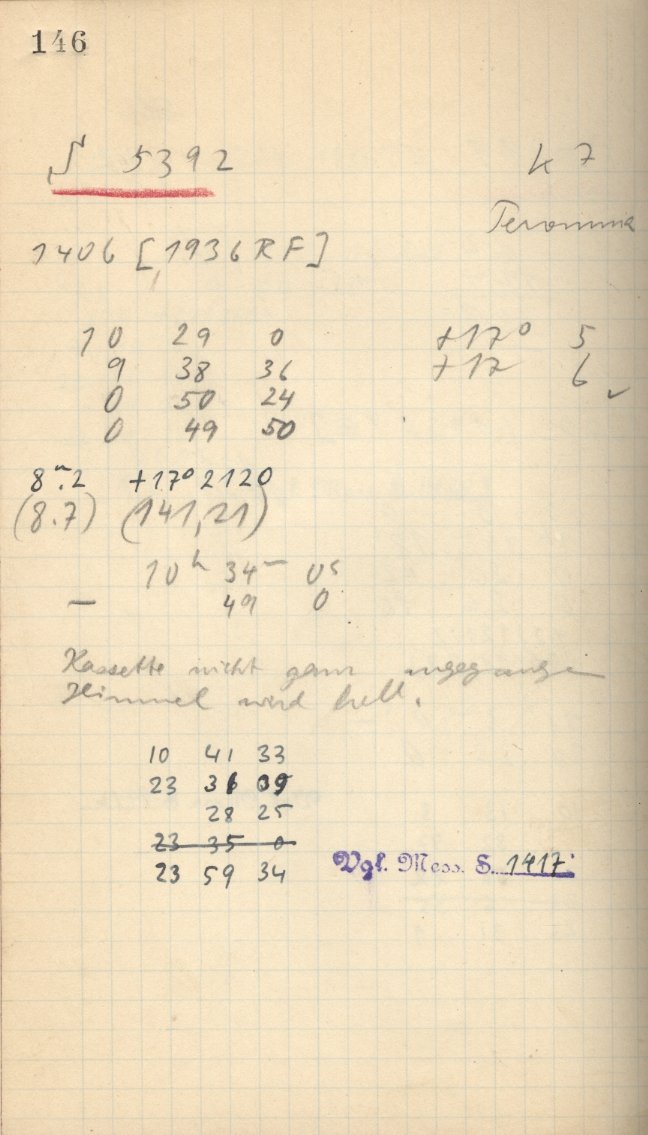 146
S 5392 K 7
1406 [1936 RF]
10 29 0 +17° 5
9 38 36 +17 6
0 50 24
0 49 50
8ᵐ.2 +17° 2120
(8.7) (141,21)
10ʰ 34ᵐ 0ˢ
— 49 0
Kassette nicht ganz
Himmel wird hell.
10 41 33
23 36 09
28 25
23 35 0
23 59 34
Vgl. Mess. S. 1417